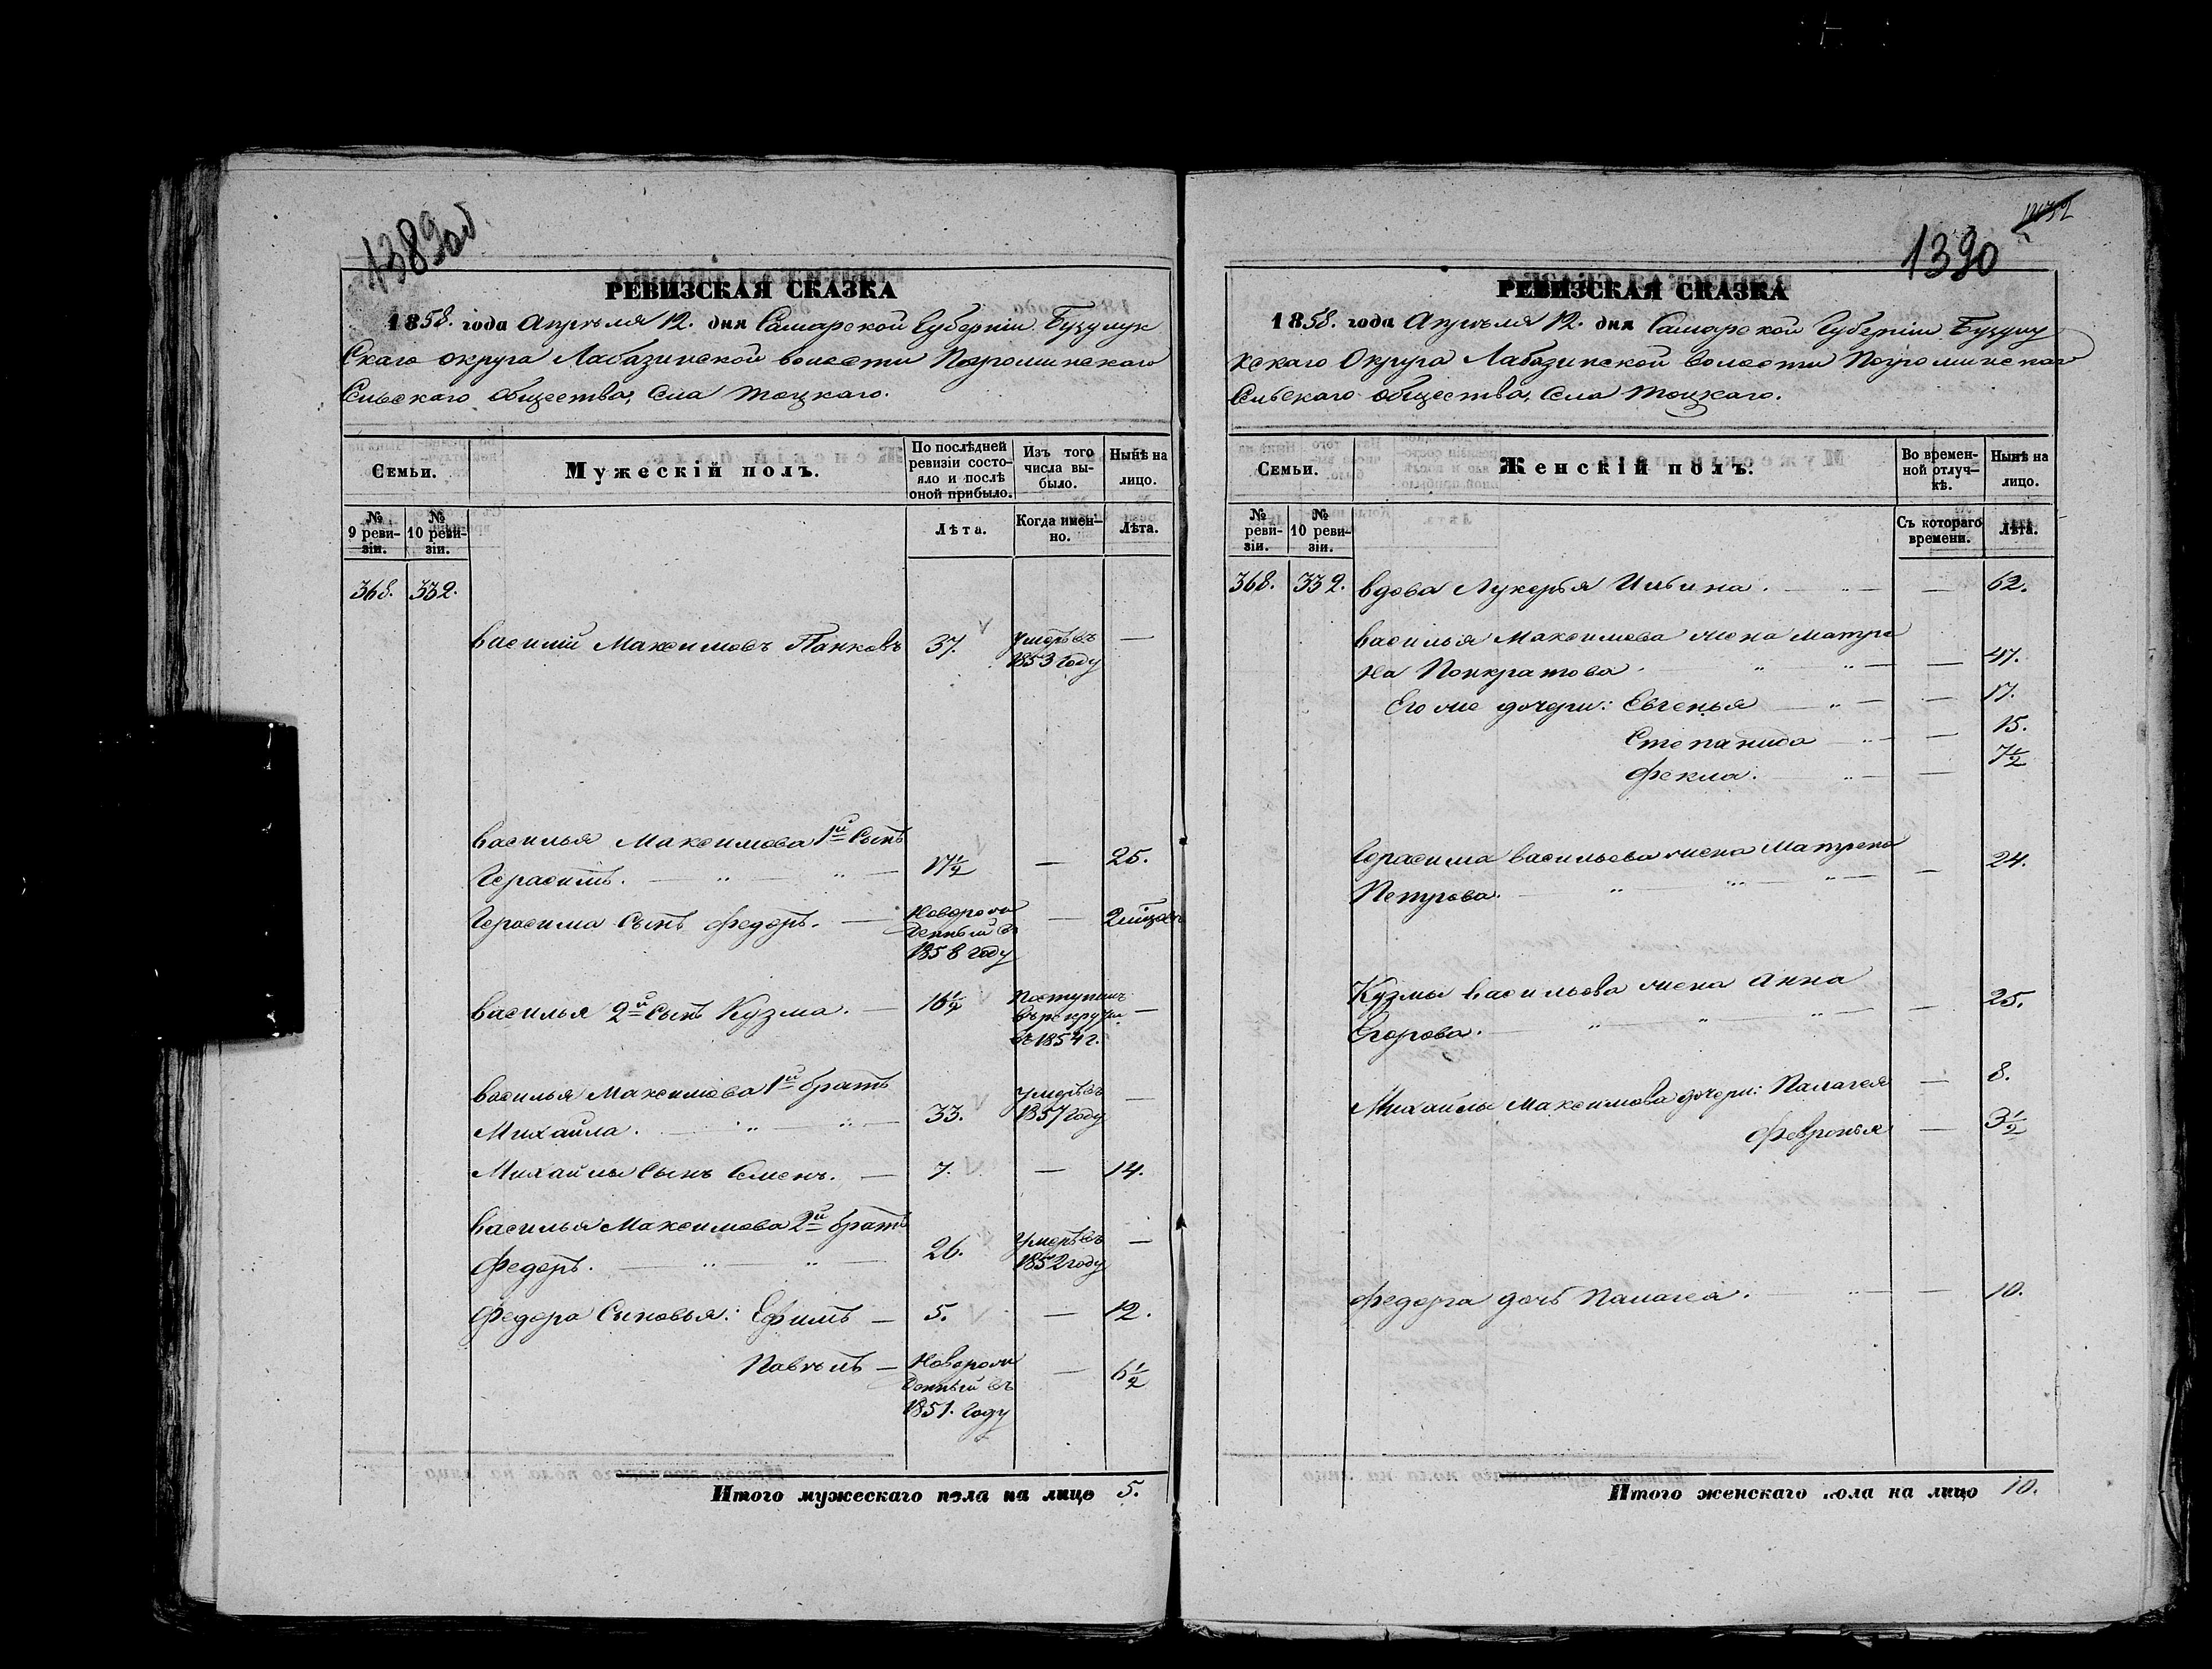 1389об
РЕВИЗСКАЯ СКАЗКА
1858. года Апрѣля 12. дня Самарской Губерніи Бузулук
скаго округа Лабазинской волости Погроминскаго
Сельскаго общества, села Тоцкаго.
Семьи.
Мужескій полъ.
По послѣдней
ревизіи состо-
яло и послѣ
оной прибыло.
Изъ того
числа вы-
было.
Нынѣ на
лицо.
№
9 реви-
зіи.
№
10 реви-
зіи.
Лѣта.
Когда имен-
но.
Лѣта.
368. 332.
Василій Максимовъ Панковъ 37. Умеръ въ —
1853 году
Василья Максимова 1й Сынъ
Герасимъ. — 17½ — 25.
Герасима Сынъ Федоръ. — Новорож
денный въ — 2 мѣсяц
1858 году
Василья 2й Сынъ Кузма. — 16½ Поступил
въ рекруты —
въ 1854 г.
Василья Максимова 1й братъ
Михайла. — 33. Умеръ въ —
1857 году
Михайлы Сынъ Семенъ. — 7. — 14.
Василья Максимова 2й братъ
Федоръ. — 26. Умеръ въ —
1852 году
Федора Сыновья: Ефимъ — 5. — 12.
Павелъ — Новорож
денный въ — 6½
1851. году
Итого мужескаго пола на лицо 5.
1390
РЕВИЗСКАЯ СКАЗКА
1858. года Апрѣля 12. дня Самарской Губерніи Бузулу
кскаго Округа Лабазинской волости Погроминскаго
Сельскаго общества, села Тоцкаго.
Семьи.
Женскій полъ.
Во времен-
ной отлуч-
кѣ.
Нынѣ на
лицо.
№
реви-
зіи.
№
10 реви-
зіи.
Съ котораго
времени.
Лѣта.
368. 332. Вдова Лукерья Ильина. — — 62.
Василья Максимова жена Матре
на Понкратова. — — 47.
Его же дочери: Евгенья — — 17.
Степанида — — 15.
Фекла. — — 7½
Герасима Васильева жена Матрена
Петрова. — — 24.
Кузмы Васильева жена Анна
Егорова. — — 25.
Михайлы Максимова дочери: Палагея — 8.
Февронья — 3½
Федора дочь Палагея. — — 10.
Итого женскаго пола на лицо 10.